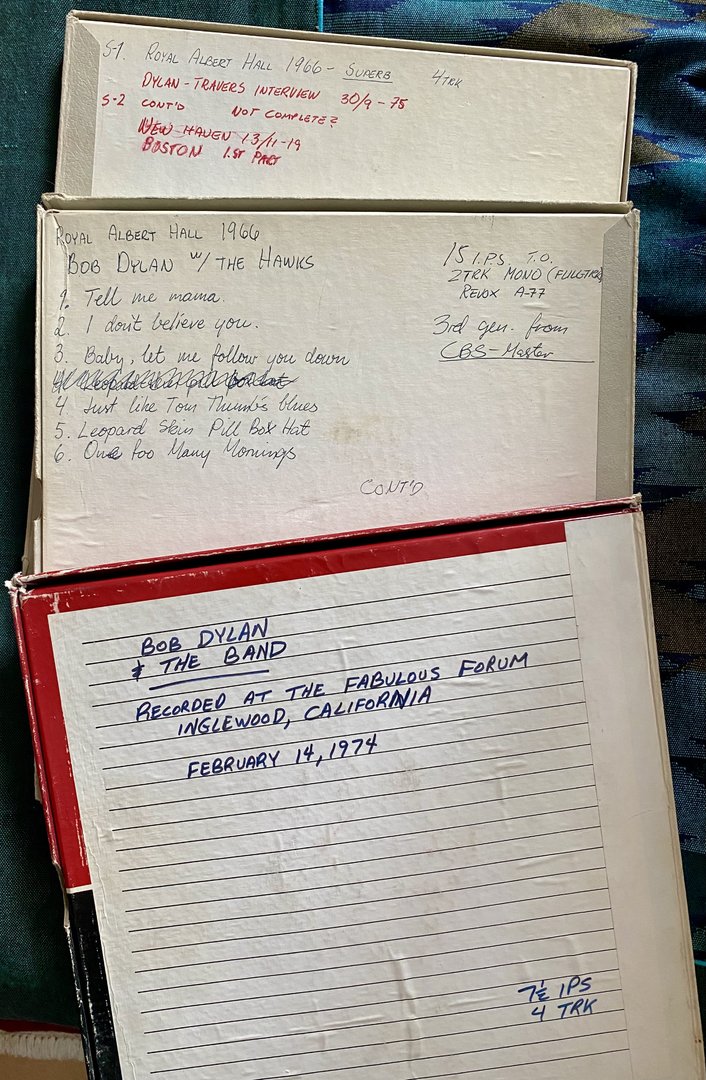 S-1. ROYAL ALBERT HALL 1966 - SUPERB 4TRK
DYLAN - TRAVERS INTERVIEW 30/9-75
S-2 CONT'D NOT COMPLETE?
NEW HAVEN 13/11-19
BOSTON 1.ST PART
ROYAL ALBERT HALL 1966
BOB DYLAN W/ THE HAWKS
1. Tell me mama.
2. I don't believe you.
3. Baby, let me follow you down
4. Just like Tom Thumb's blues
5. Leopard Skin Pill Box Hat
6. One Too Many Mornings
CONT'D
15 I.P.S. T.O.
2TRK MONO (FULLTRK)
REVOX A-77
3rd gen. from
CBS-Master
BOB DYLAN
& THE BAND
RECORDED AT THE FABULOUS FORUM
INGLEWOOD, CALIFORNIA
FEBRUARY 14, 1974
7½ IPS
4 TRK